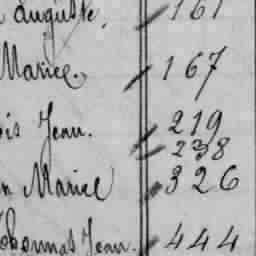 auguste, 161
Marice. 167
is Jean. 219
238
n Marice 326
Jean. 444